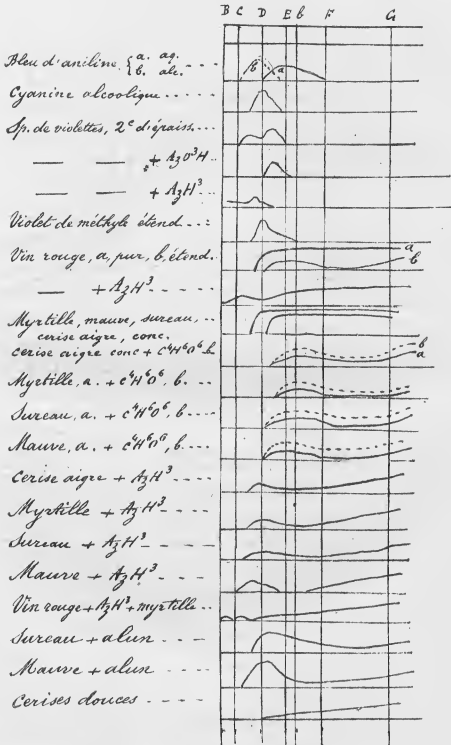 B C D E b F G
Bleu d'aniline {a. aq. - - -
b. alc.
b a
Cyanine alcoolique - - - -
Sp. de violettes, 2e d'épaiss. - - -
— — + AzO³H -
— — + AzH³ -
Violet de méthyle étend - - :
Vin rouge, a, pur, b, étend.
a
b
— + AzH³ - - - - -
Myrtille, mauve, sureau, - -
cerise aigre, conc.
cerise aigre conc + C⁴H⁶O⁶ b
b
a
Myrtille, a. + C⁴H⁶O⁶, b. - -
Sureau, a. + C⁴H⁶O⁶, b - - - -
Mauve, a + C⁴H⁶O⁶, b. - - - -
Cerise aigre + AzH³ - - - -
Myrtille + AzH³ - - - -
Sureau + AzH³ - - - - -
Mauve + AzH³ - - - -
Vin rouge + AzH³ + myrtille - -
Sureau + alun - - - -
Mauve + alun - - - -
Cerises douces - - - -